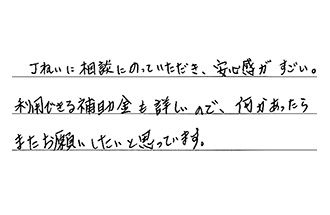 丁ねいに相談にのっていただき、安心感がすごい。
利用できる補助金も詳しいので、何かあったら
またお願いしたいと思っています。